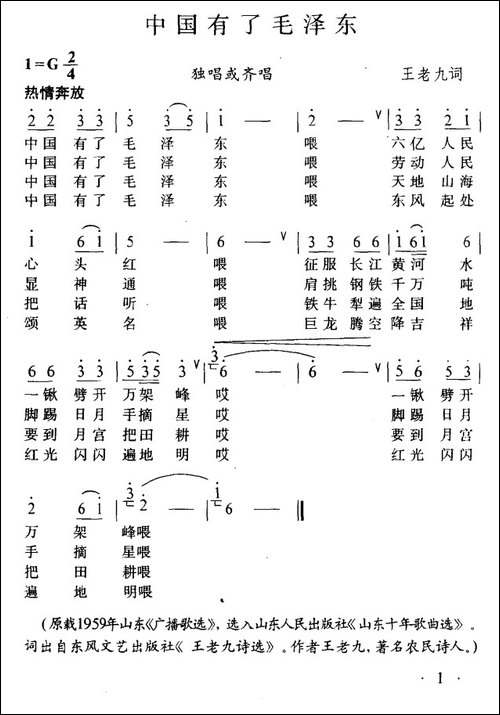 中国有了毛泽东
1=G 2/4
独唱或齐唱
王老九词
热情奔放
2 2 3 3 | 5 3 5 | 1 — | 2 — ∨ | 3 3 2 1 |
中国 有了 毛 泽 东 喂 六亿 人民
中国 有了 毛 泽 东 喂 劳动 人民
中国 有了 毛 泽 东 喂 天地 山海
中国 有了 毛 泽 东 喂 东风 起处
1 6 1 | 5 — | 6 — ∨ | 3 3 6 6 | 1 6 1 6 |
心 头 红 喂 征服 长江 黄河 水
显 神 通 喂 肩挑 钢铁 千万 吨
把 话 听 喂 铁牛 犁遍 全国 地
颂 英 名 喂 巨龙 腾空 降吉 祥
6 6 3 3 | 5 3 5 3 ∨ | 3 6 — | 6 — ∨ | 5 6 5 3 |
一锹 劈开 万架 峰 哎 一锹 劈开
脚踢 日月 手摘 星 哎 脚踢 日月
要到 月宫 把田 耕 哎 要到 月宫
红光 闪闪 遍地 明 哎 红光 闪闪
2 6 1 | 3 2 — | 1 6 — ‖
万 架 峰喂
手 摘 星喂
把 田 耕喂
遍 地 明喂
(原载1959年山东《广播歌选》，选入山东人民出版社《山东十年歌曲选》。
词出自东风文艺出版社《王老九诗选》。作者王老九，著名农民诗人。)
· 1 ·